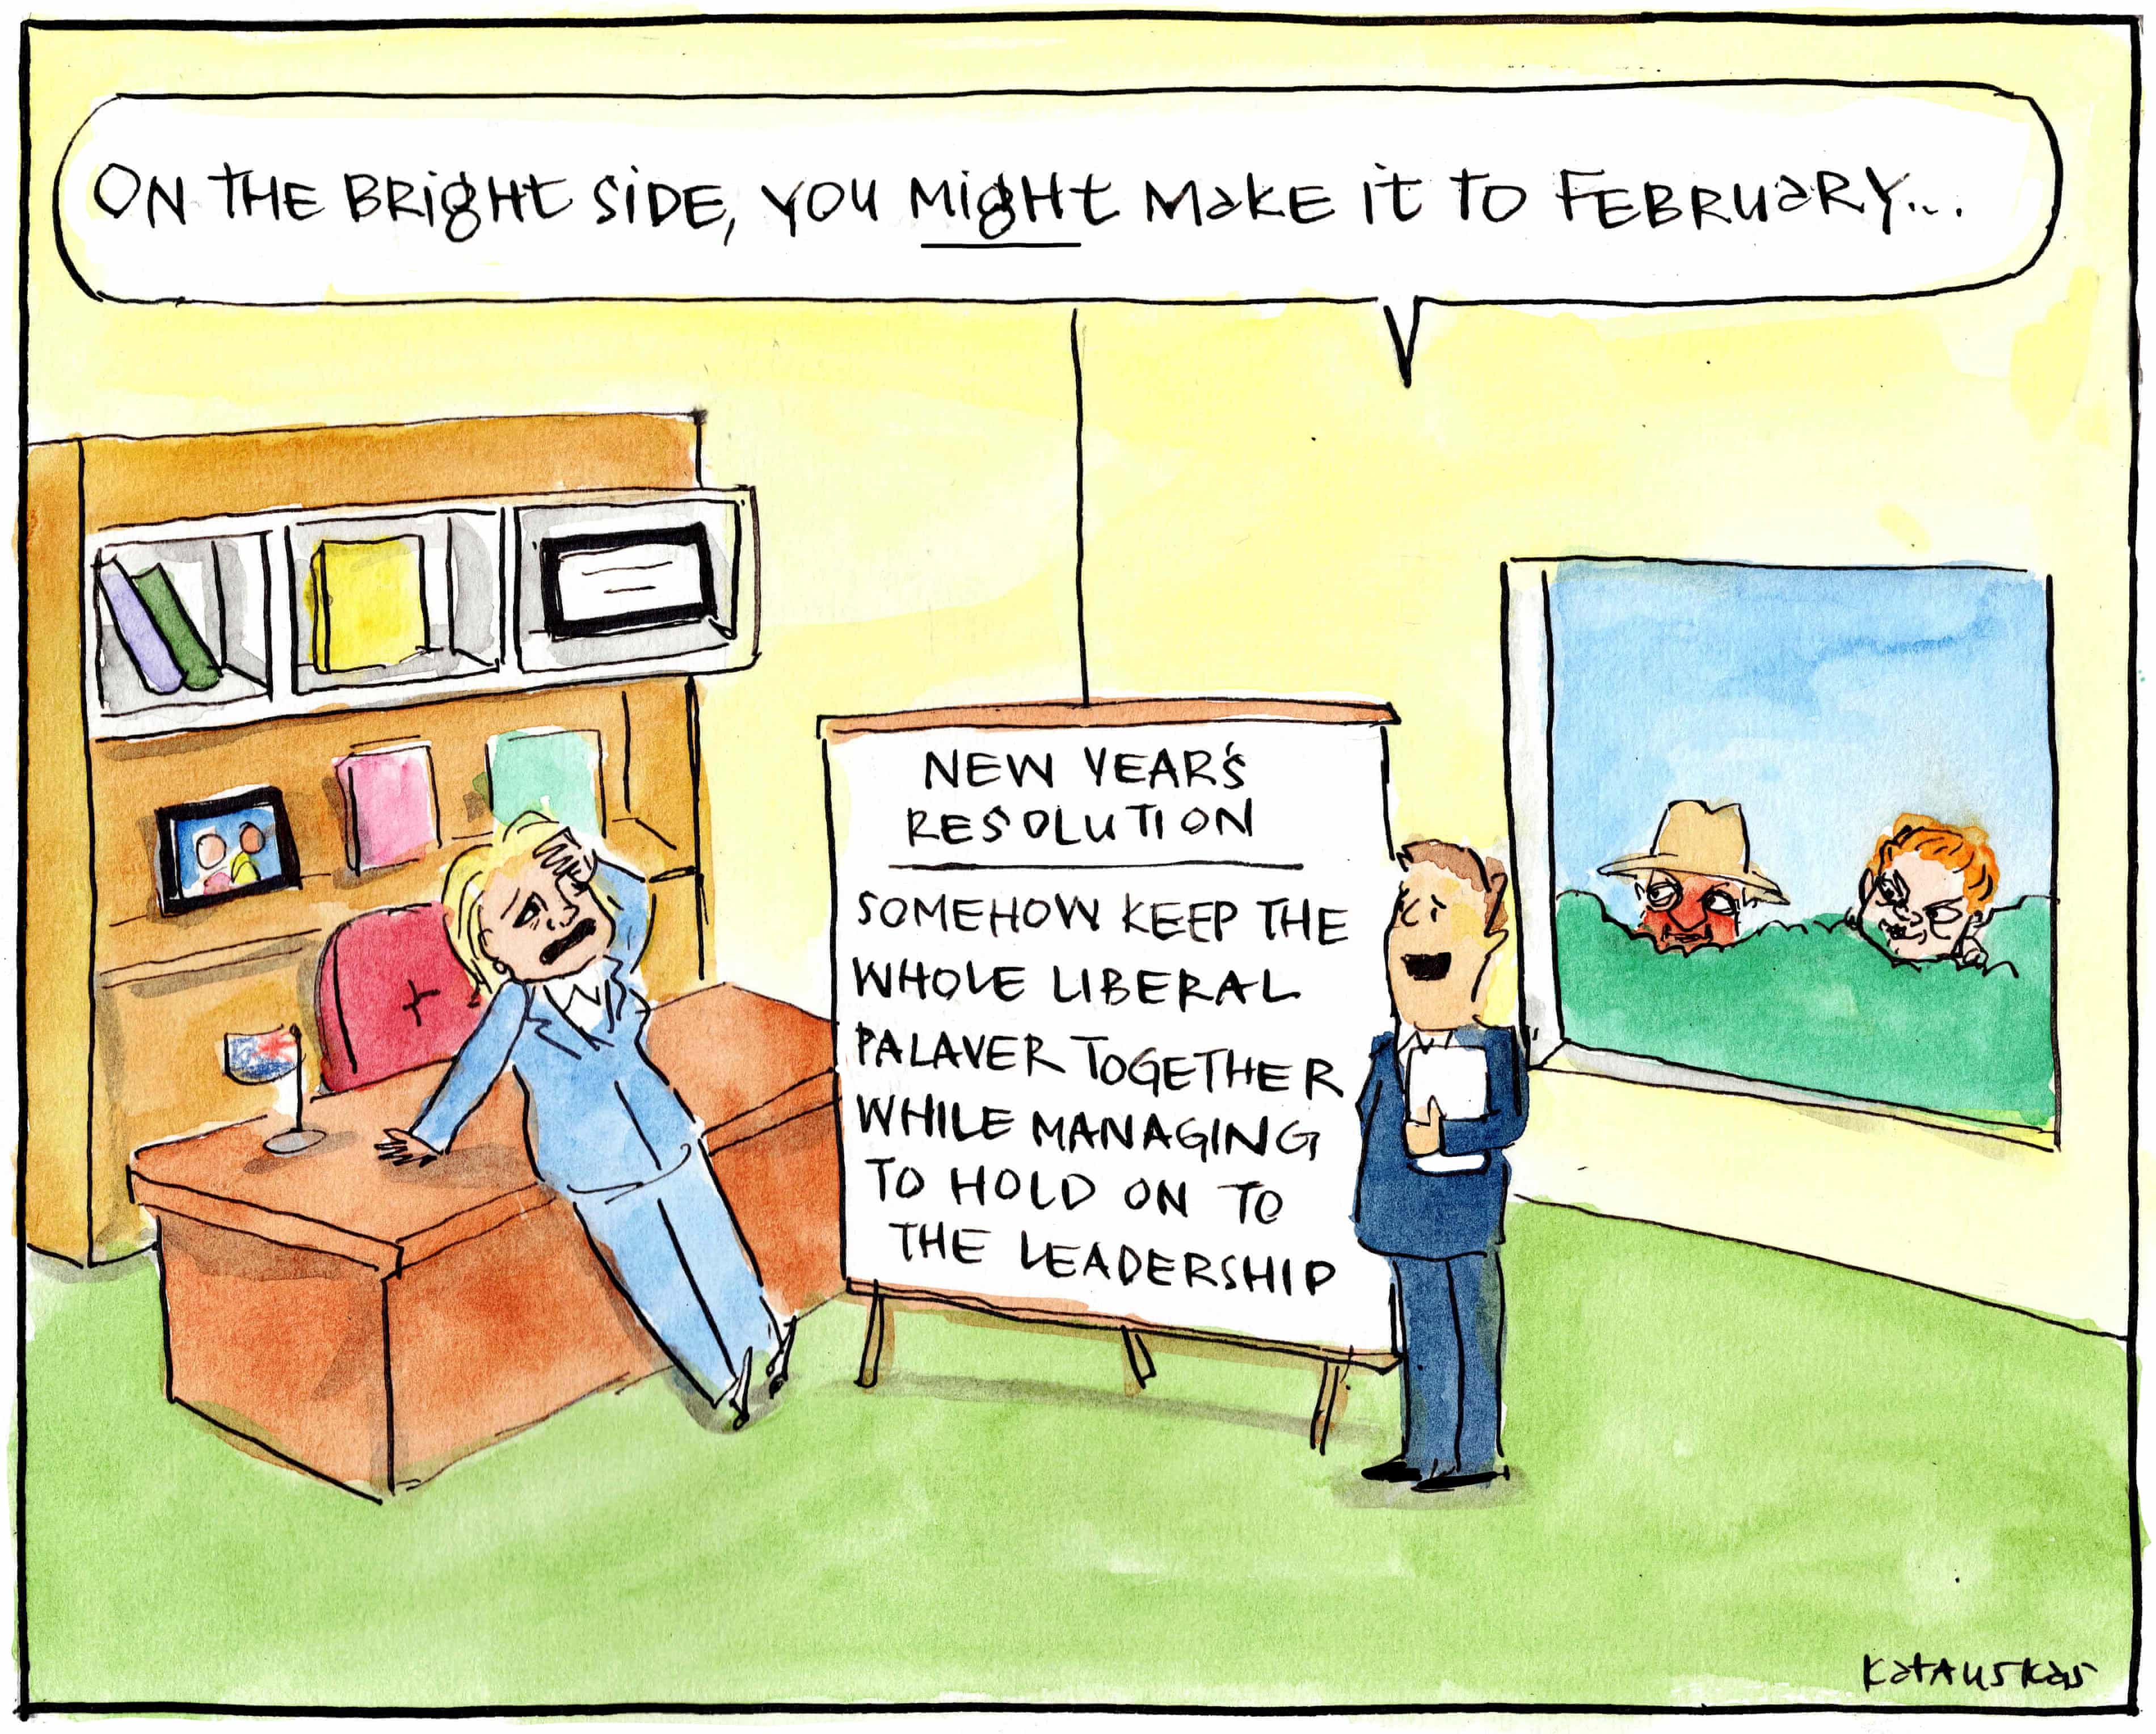 ON THE BRIGHT SIDE, YOU MIGHT MAKE IT TO FEBRUARY...
NEW YEAR'S
RESOLUTION
SOMEHOW KEEP THE
WHOLE LIBERAL
PALAVER TOGETHER
WHILE MANAGING
TO HOLD ON TO
THE LEADERSHIP
KATAUSKAS